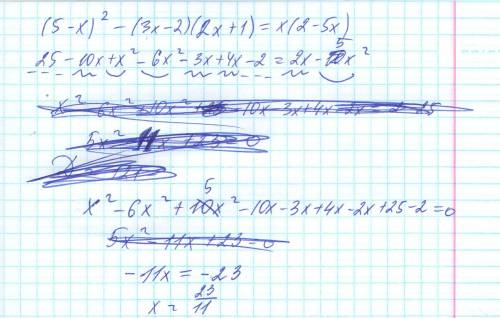 (5-x)² - (3x-2)(2x+1) = x(2-5x)
25 - 10x + x² - 6x² - 3x + 4x - 2 = 2x - 5x²
x² - 6x² + 5x² - 10x - 3x + 4x - 2x + 25 - 2 = 0
5x² - 11x + 23 = 0
-11x = -23
x = 23/11